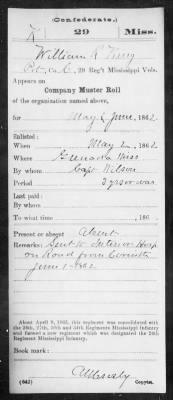 (Confederate.)
K 29 Miss.
William R
Pvt, Co. C, 29 Reg't Mississippi Vols.
Appears on
Company Muster Roll
of the organization named above,
for May & June, 1862.
Enlisted:
When May 2, 1862.
Where Grenada Miss
By whom Capt Wilson
Period 3 yrs or war
Last paid:
By whom
To what time , 186 .
Present or absent Absent
Remarks: Sent to Interior Hosp
on Road from Corinth
June 1 1862.
About April 9, 1865, this regiment was consolidated with
the 24th, 27th, 30th and 34th Regiments Mississippi Infantry
and formed a new regiment which was designated the 24th
Regiment Mississippi Infantry.
Book mark:
(642) Copyist.